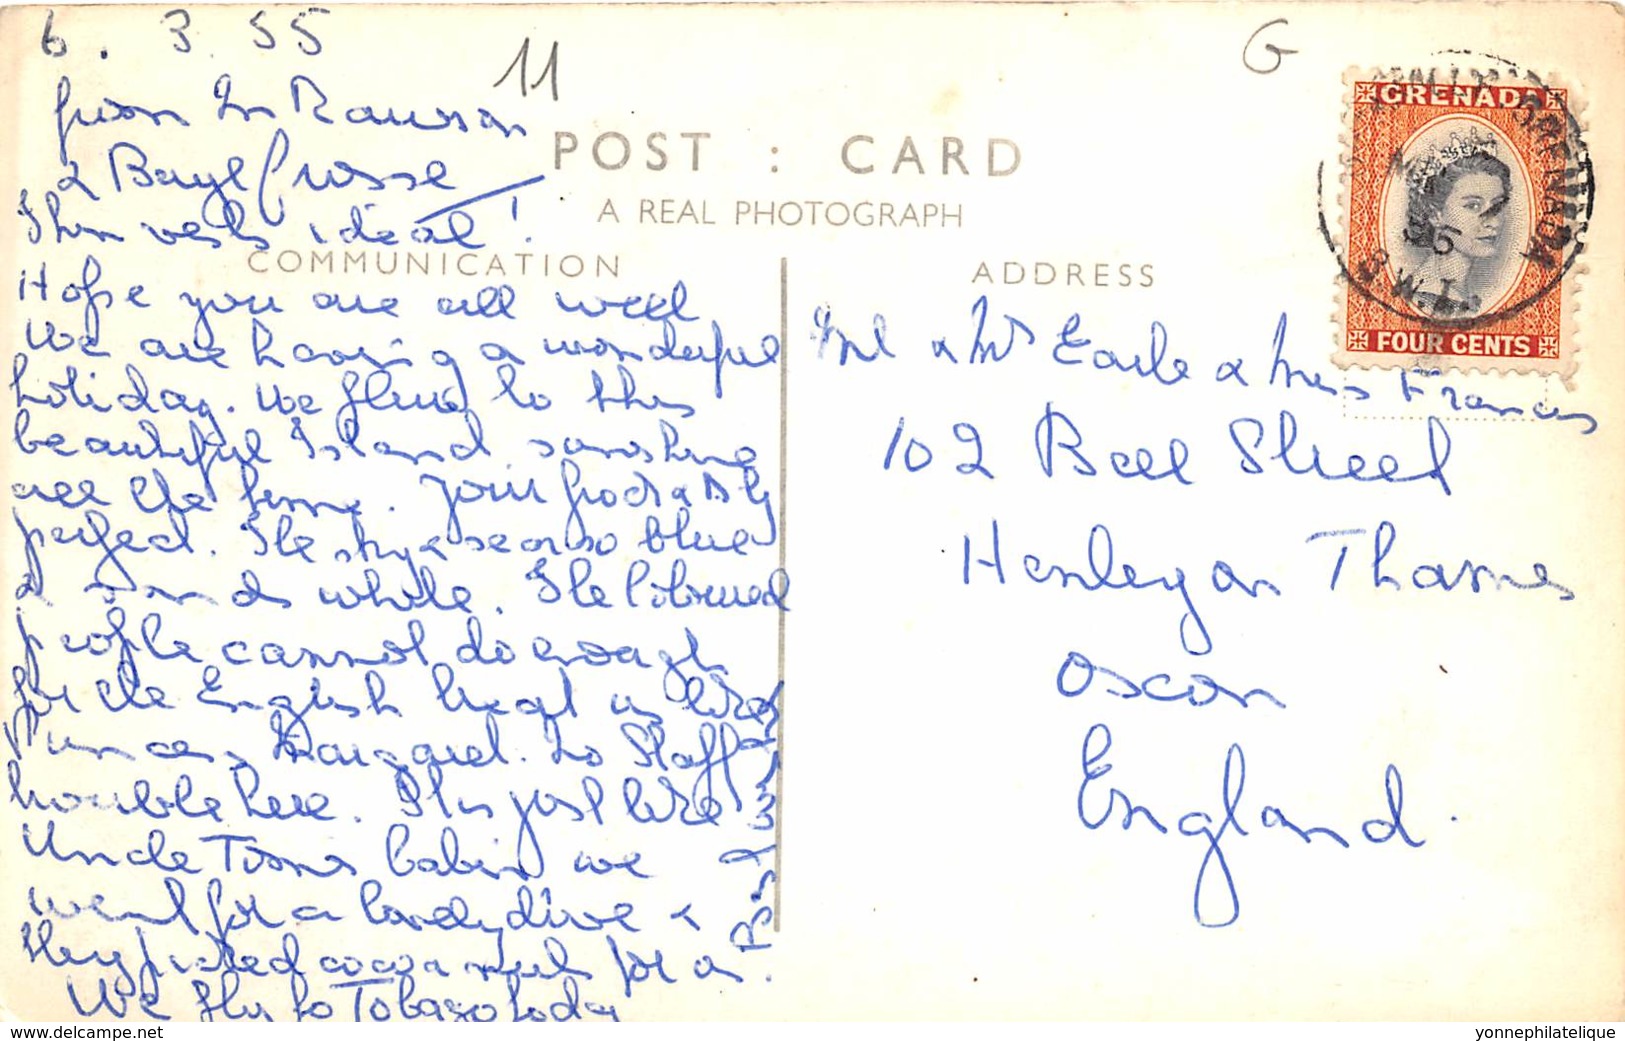 6.3.55
11
G
from Mr Rawson
& Bayl
Thin vests ideal!
POST : CARD
A REAL PHOTOGRAPH
COMMUNICATION
Hope you are all well
We are having a wonderful
holiday. We flew to this
beautiful Island sunshine
all the time. Your frocks
perfect. The sky & sea so blue
& sands white. The Coloured
people cannot do enough
for the English treat us like
Princess Margaret. No Staff
trouble here. It is just like
Uncle Toms Cabin we
went for a lovely drive &
they picked cocoa nuts for us.
We fly to Tobago today
GRENADA
FOUR CENTS
GRENADA
B.W.I.
ADDRESS
Mr & Mrs Earle & Miss Francis
102 Bell Street
Henley on Thames
Oxon
England.
www.delcampe.net
yonnephilatelique